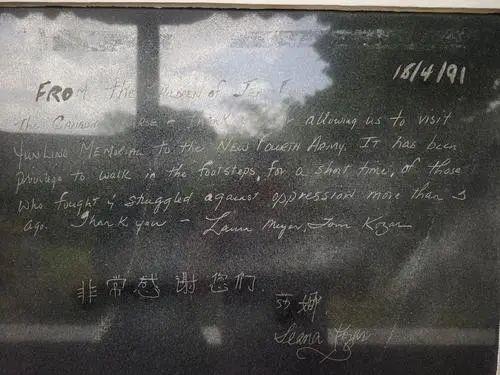 18/4/91
FROM the CHILDREN of
The allowing us to visit
YUNLING MEMORIAL to the NEW FOURTH ARMY. IT has been
privilege to walk in the footsteps, for a short time, of those
who fought & struggled against oppression more than 5
ago. Thank you - Laura Meyer, Tom Kozar
非常感谢您们
莎娜
Seana Kozar